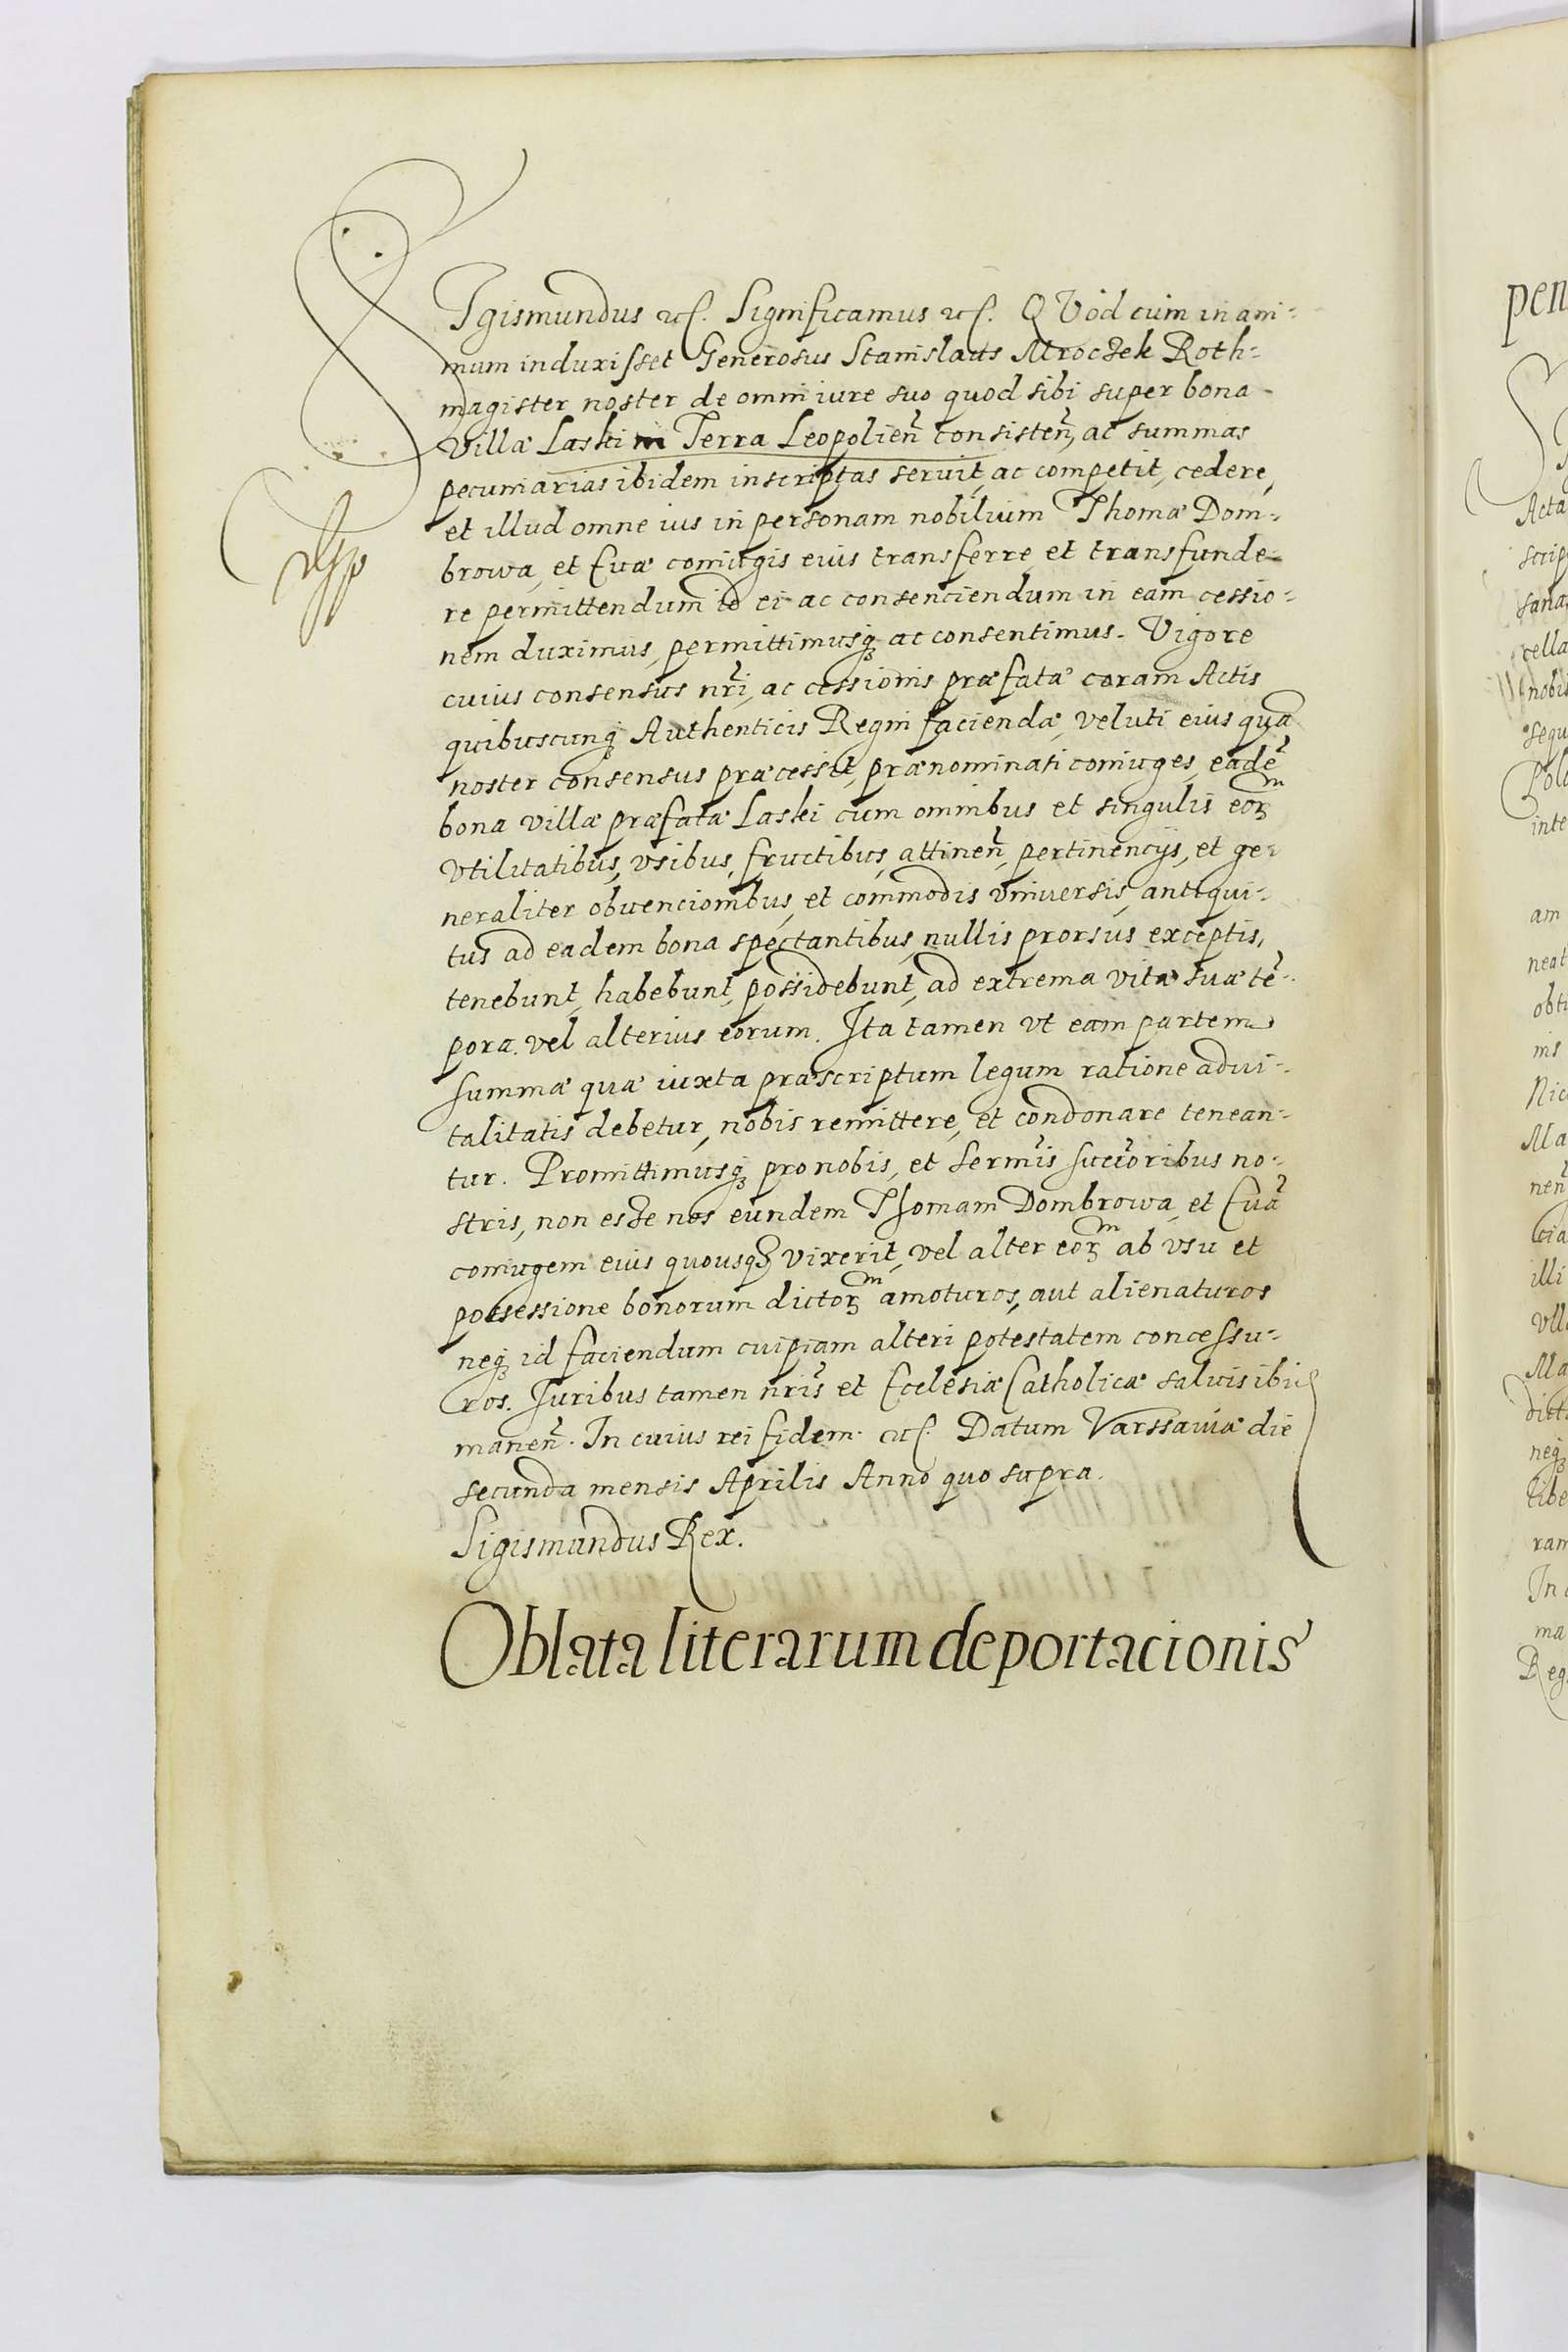 SIgismundus etc. Significamus etc. QVod cum in ani-
mum induxisset Generosus Stanislaus Mroczek Roth-
magister noster de omni iure suo quod sibi super bona
villæ Laski in Terra Leopolien̄ consisten̄, ac summas
pecuniarias ibidem inscriptas seruit, ac competit, cedere,
et illud omne ius in personam nobilium Thomæ Dom-
browa, et Euæ coniugis eius transferre, et transfunde-
re permittendum id ei ac consenciendum in eam cessio-
nem duximus, permittimusq₃ ac consentimus. Vigore
cuius consensus nr̄i, ac cessionis præfatæ coram Actis
quibuscunq₃ Authenticis Regni faciendæ, veluti eius quā
noster consensus præcessit, prænominati coniuges, eadē
bona villæ præfatæ Laski cum omnibus et singulis eorᵐ
vtilitatibus, vsibus, fructibus, attinen̄, pertinencijs, et ge-
neraliter obuencionibus, et commodis vniuersis, antiqui-
tus ad eadem bona spectantibus, nullis prorsus exceptis,
tenebunt, habebunt, possidebunt, ad extrema vitæ suæ tē-
pora. vel alterius eorum. Ita tamen vt eam partem
summæ quæ iuxta præscriptum legum ratione adui-
talitatis debetur, nobis remittere, et condonare tenean-
tur. Promittimusq₃ pro nobis, et Sermīs succ̄oribus no-
stris, non esse nos eundem Thomam Dombrowa, et Euā
coniugem eius quousq₃ vixerit, vel alter eorᵐ ab vsu et
possessione bonorum dictorᵐ amoturos, aut alienaturos
neq₃ id faciendum cuipiam alteri potestatem concessu-
ros. Juribus tamen nrīs et Ecclesiæ Catholicæ saluis ibi
manen̄. In cuius rei fidem. etc. Datum Varssauiæ die
secunda mensis Aprilis Anno quo supra.
Sigismundus Rex.
Oblata literarum deportacionis
pen